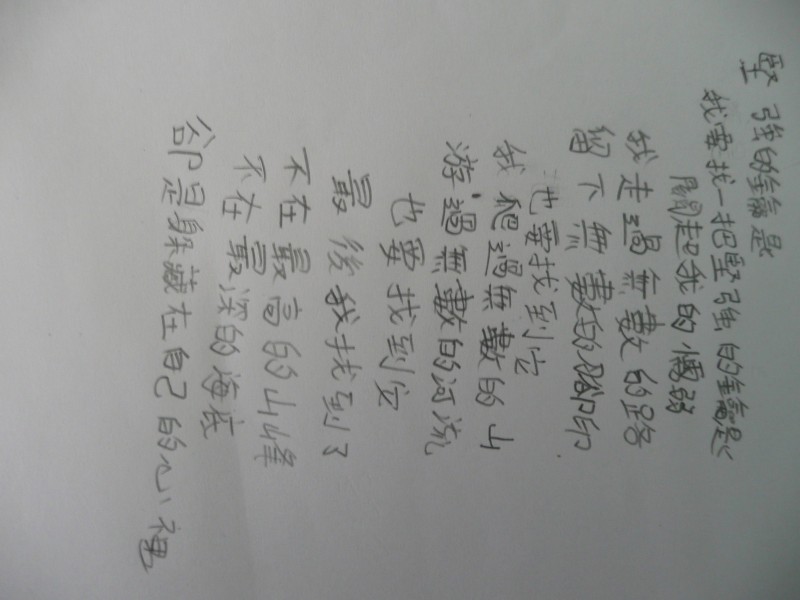 堅強的鑰匙
我要找一把堅強的鑰匙
關起我的懦弱
我走過無數的路
留下無數的腳印
也要找到它
我爬過無數的山
游過無數的河流
也要找到它
最後我找到了
不在最高的山峰
不在最深的海底
卻是躲藏在自己的心裡